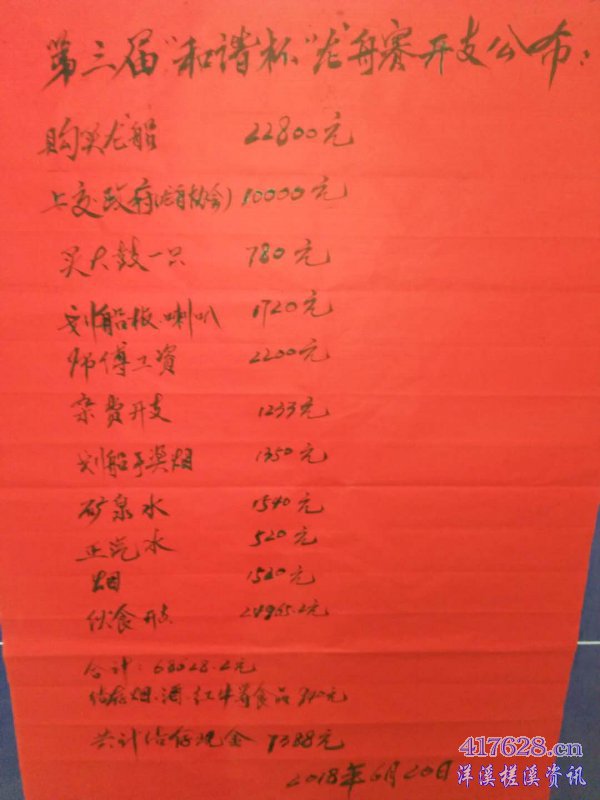 第三届"和谐杯"龙舟赛开支公布:
购买龙船 22800元
上交政府(龙舟协会) 10000元
买大鼓一只 780元
划船板.喇叭 1720元
师傅工资 2200元
杂费开支 1233元
划船手奖烟 1350元
矿泉水 1540元
正汽水 520元
烟 1520元
伙食开支 24965.2元
合计: 68628.2元
结存烟.酒.红牛等食品
共计结存现金
2018年6月20日
417628.cn
洋溪槎溪资讯